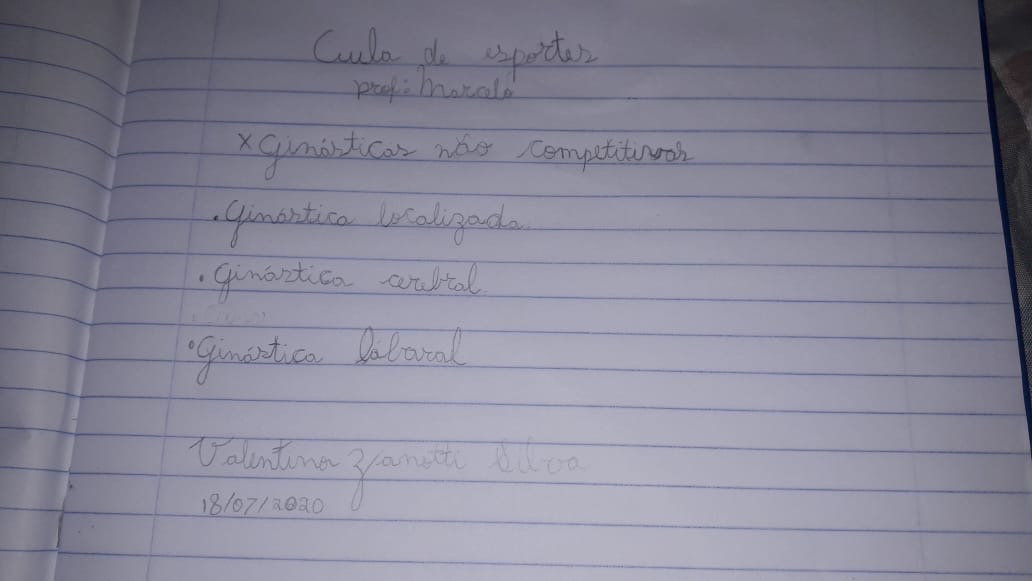 Aula de esportes
prof: Marcelo
x Ginásticas não competitivas
. Ginástica localizada
. Ginástica cerebral
. Ginástica labaral
Valentina Zanotti Silva
18/07/2020